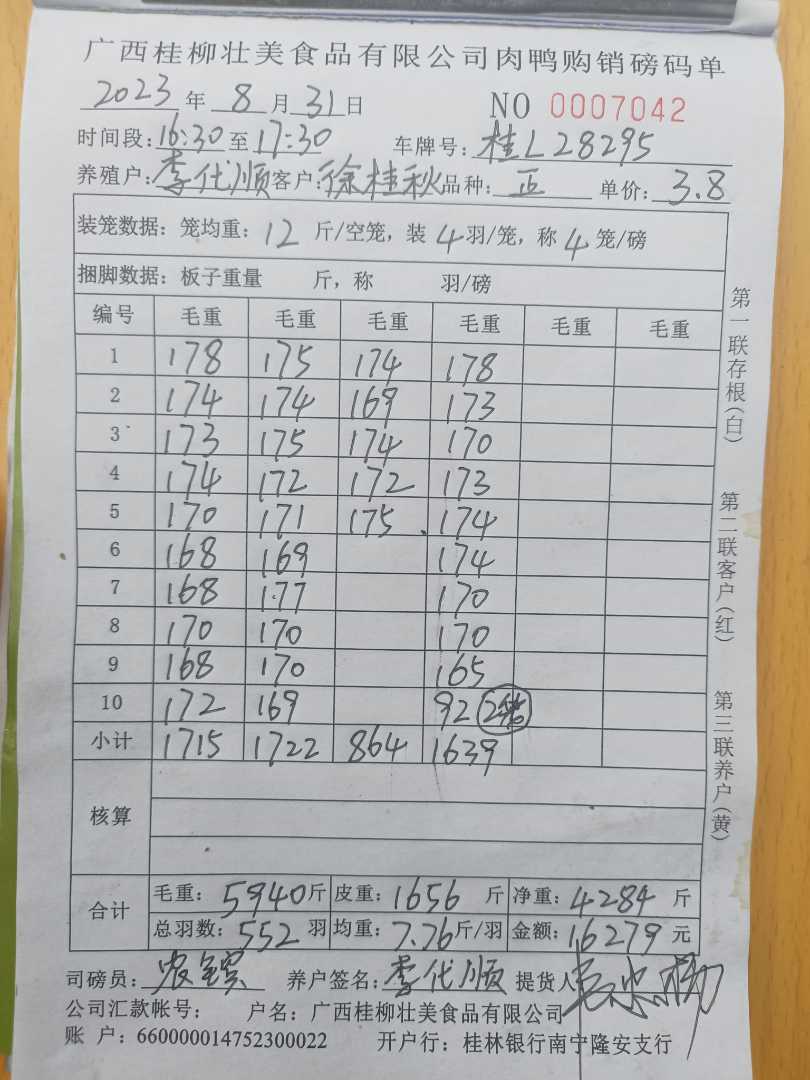 广西桂柳壮美食品有限公司肉鸭购销磅码单
2023年 8月31日 NO 0007042
时间段:16:30至17:30 车牌号:桂L28295
养殖户:李代顺 客户:徐桂秋 品种:正 单价:3.8
装笼数据: 笼均重: 12 斤/空笼, 装 4 羽/笼, 称 4 笼/磅
捆脚数据: 板子重量 斤, 称 羽/磅
编号 毛重 毛重 毛重 毛重 毛重 毛重
1 178 175 174 178
2 174 174 169 173
3 173 175 174 170
4 174 172 172 173
5 170 171 175 174
6 168 169 174
7 168 177 170
8 170 170 170
9 168 170 165
10 172 169 92 2笼
小计 1715 1722 864 1639
核算
合计 毛重: 5940斤 皮重: 1656 斤 净重: 4284 斤
总羽数: 552 羽 均重: 7.76斤/羽 金额: 16279 元
司磅员: 养户签名:李代顺 提货人
公司汇款帐号: 户名: 广西桂柳壮美食品有限公司
账 户: 660000014752300022 开户行: 桂林银行南宁隆安支行
第一联存根(白)
第二联客户(红)
第三联养户(黄)